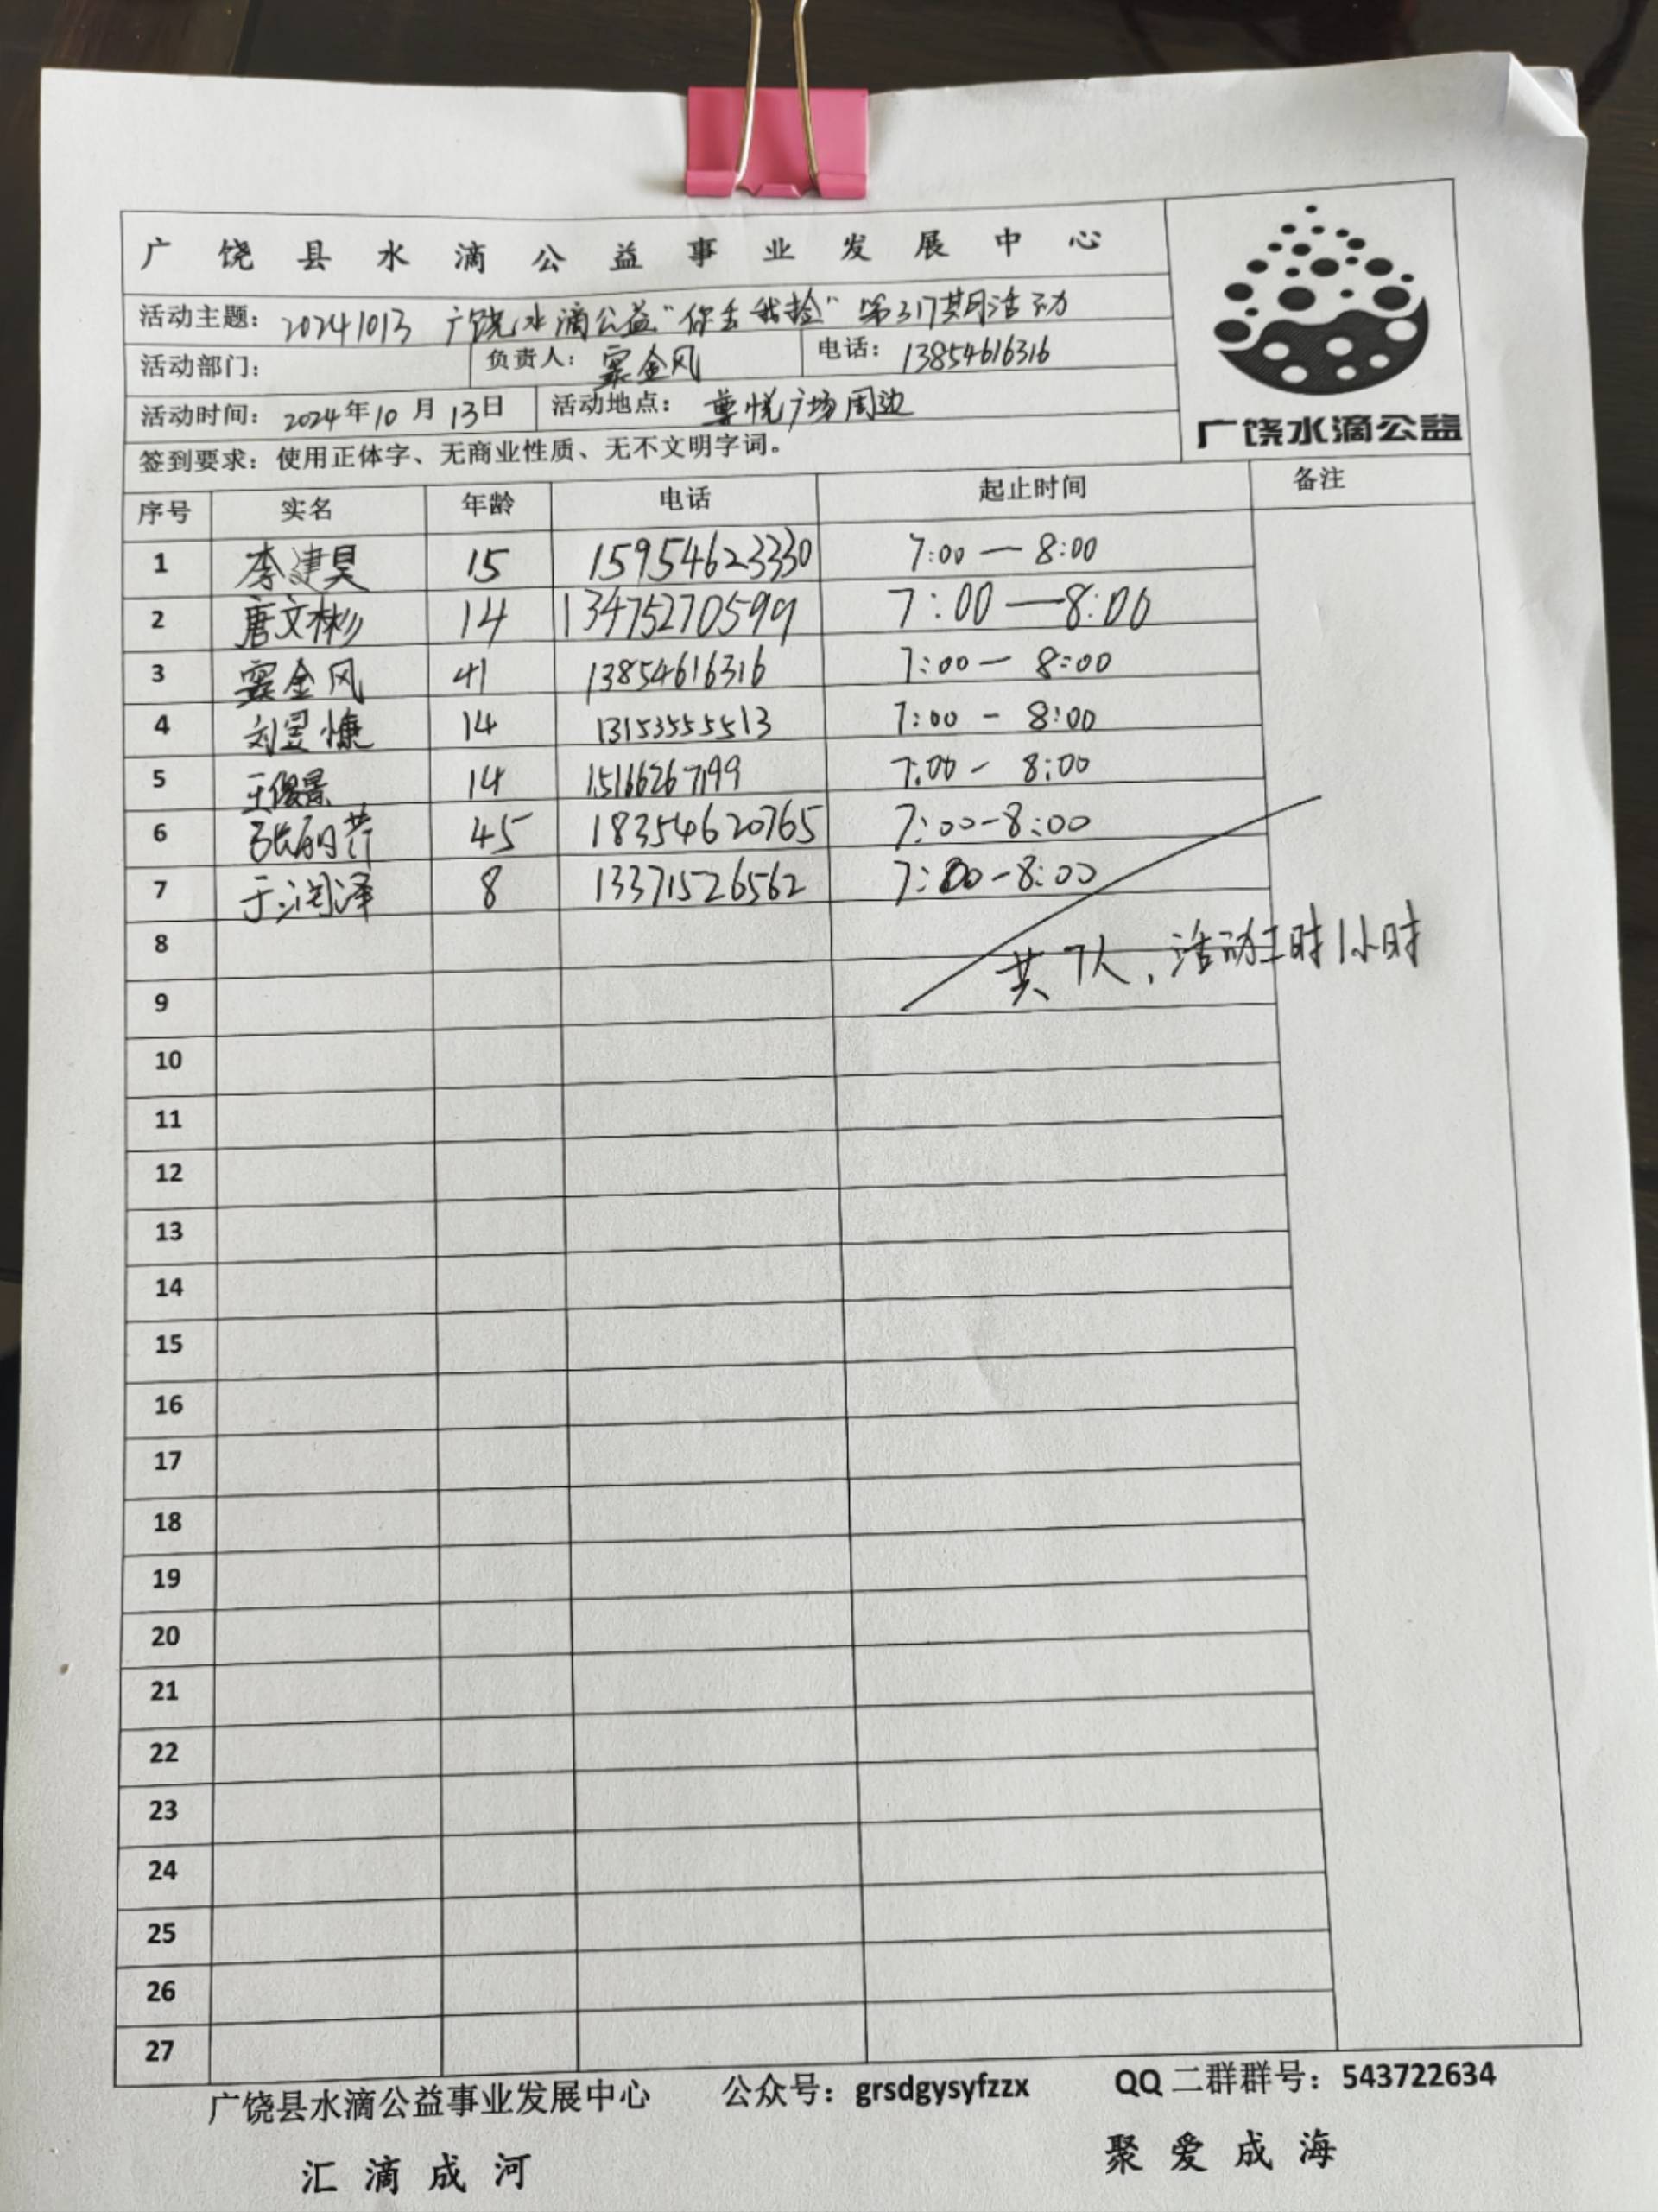 广饶县水滴公益事业发展中心
活动主题：20241013 广饶水滴公益"你丢我捡"第317期活动
活动部门： 负责人：窦金凤 电话：13854616316
活动时间：2024年10月13日 活动地点：尊悦广场周边
广饶水滴公益
签到要求：使用正体字、无商业性质、无不文明字词。
序号 实名 年龄 电话 起止时间 备注
1 李建昊 15 15954623330 7:00—8:00
2 唐文彬 14 13475270599 7:00—8:00
3 窦金凤 41 13854616316 7:00—8:00
4 刘昱慷 14 13153555513 7:00-8:00
5 王俊景 14 15166267199 7:00-8:00
6 张丽芹 45 18354620765 7:00-8:00
7 于润泽 8 13371526562 7:00-8:00
8
共7人，活动工时1小时
9
10
11
12
13
14
15
16
17
18
19
20
21
22
23
24
25
26
27
广饶县水滴公益事业发展中心 公众号：grsdgysyfzzx QQ二群群号：543722634
汇滴成河 聚爱成海